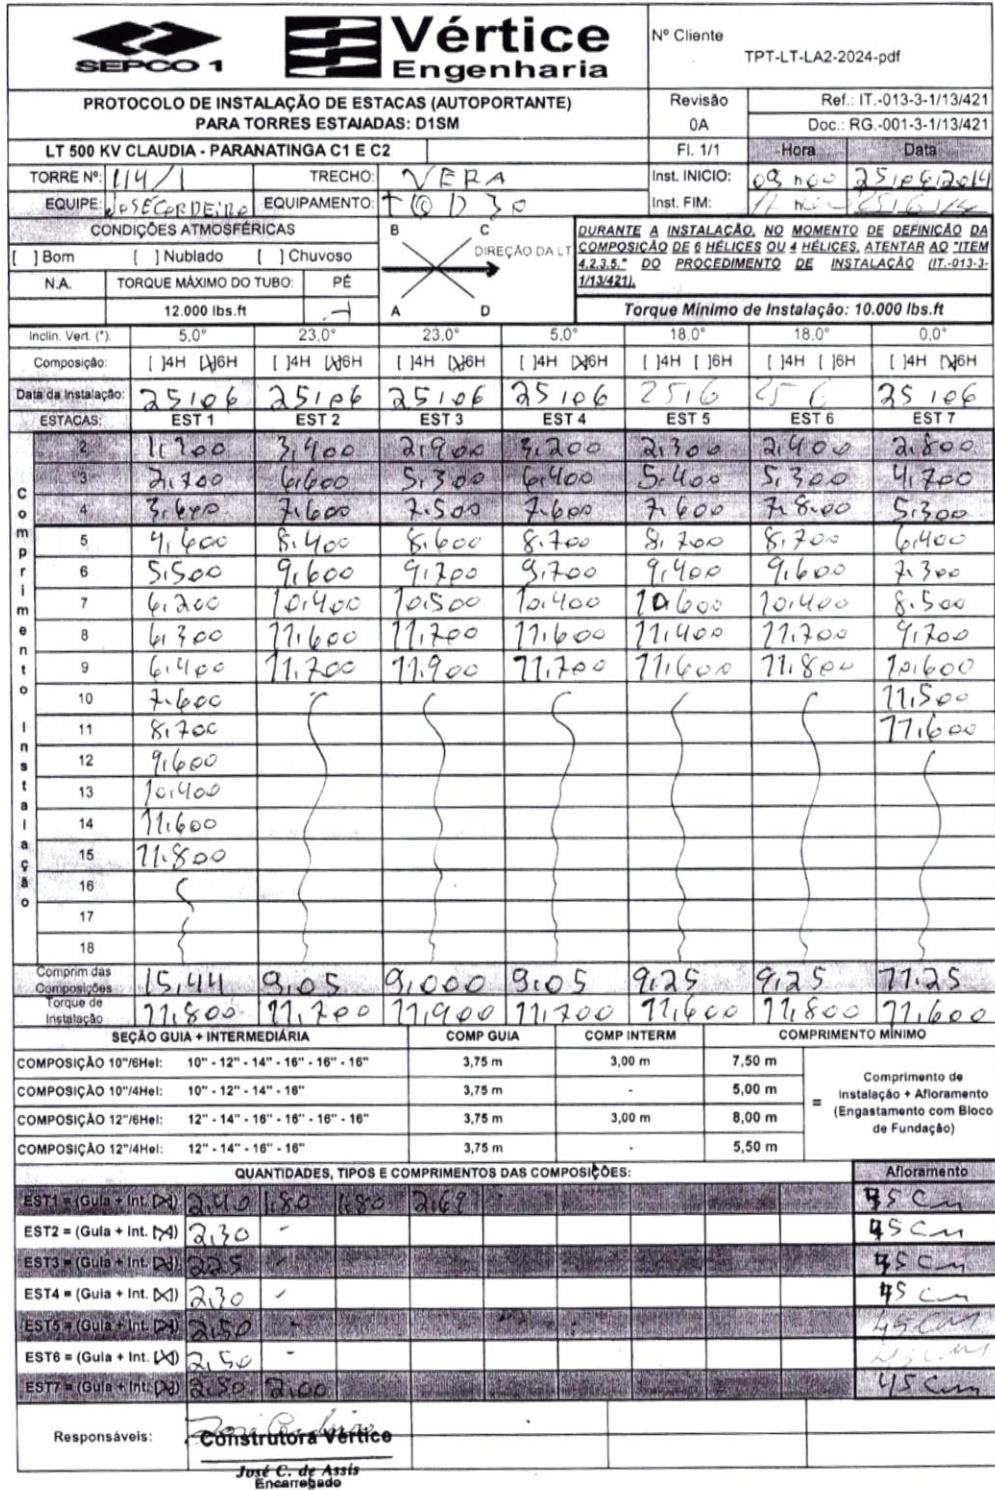 SEPCO 1
Vértice
Engenharia
Nº Cliente
TPT-LT-LA2-2024-pdf
PROTOCOLO DE INSTALAÇÃO DE ESTACAS (AUTOPORTANTE)
PARA TORRES ESTAIADAS: D1SM
Revisão
0A
Ref.: IT.-013-3-1/13/421
Doc.: RG.-001-3-1/13/421
LT 500 KV CLAUDIA - PARANATINGA C1 E C2
Fl. 1/1 Hora Data
TORRE Nº: 114/1 TRECHO: VERA Inst. INICIO: 09 hoo 25/06/2014
EQUIPE: JOSÉ CORDEIRO EQUIPAMENTO: Inst. FIM: 25/6/14
CONDIÇÕES ATMOSFÉRICAS
[ ] Bom [ ] Nublado [ ] Chuvoso
N.A. TORQUE MÁXIMO DO TUBO: PÉ
12.000 lbs.ft
B C
DIREÇÃO DA LT
A D
DURANTE A INSTALAÇÃO, NO MOMENTO DE DEFINIÇÃO DA
COMPOSIÇÃO DE 6 HÉLICES OU 4 HÉLICES, ATENTAR AO "ITEM
4.2.3.5." DO PROCEDIMENTO DE INSTALAÇÃO (IT.-013-3-
1/13/421).
Torque Mínimo de Instalação: 10.000 lbs.ft
Inclin. Vert. (°). 5,0° 23,0° 23,0° 5,0° 18,0° 18,0° 0,0°
Composição: [ ]4H [X]6H [ ]4H [X]6H [ ]4H [X]6H [ ]4H [X]6H [ ]4H [ ]6H [ ]4H [ ]6H [ ]4H [X]6H
Data da Instalação: 25/06 25/06 25/06 25/06 25/6 25/6 25/06
ESTACAS: EST 1 EST 2 EST 3 EST 4 EST 5 EST 6 EST 7
Comprimento Instalação
2 3,400 2,900 3,200 2,300 2,400 2,800
3 2,700 6,600 5,300 6,400 5,400 5,300 4,700
4 3,600 7,600 7.500 7.600 7,600 7.800 5,300
5 4,600 8,400 8,600 8.700 8,700 8,700 6,400
6 5,500 9,600 9,700 9,700 9,400 9,600 7,300
7 6,200 10,400 10,500 10,400 10,600 10,400 8,500
8 6,300 11,600 11,700 11,600 11,400 11,700 9,700
9 6,400 11,700 11,900 11,700 11,600 11,800 10,600
10 7,600 11,500
11 8,700 11,600
12 9,600
13 10,400
14 11,600
15 11.800
16
17
18
Comprim das Composições 15,44 9,05 9,000 9,05 9,25 9,25 11,25
Torque de Instalação 11,800 11,700 11,900 11,700 11,600 11,800 11,600
SEÇÃO GUIA + INTERMEDIÁRIA COMP GUIA COMP INTERM COMPRIMENTO MÍNIMO
COMPOSIÇÃO 10"/6Hel: 10" - 12" - 14" - 16" - 16" - 16" 3,75 m 3,00 m 7,50 m
COMPOSIÇÃO 10"/4Hel: 10" - 12" - 14" - 16" 3,75 m - 5,00 m
COMPOSIÇÃO 12"/6Hel: 12" - 14" - 16" - 16" - 16" - 16" 3,75 m 3,00 m 8,00 m
COMPOSIÇÃO 12"/4Hel: 12" - 14" - 16" - 16" 3,75 m - 5,50 m
= Comprimento de
Instalação + Afloramento
(Engastamento com Bloco
de Fundação)
QUANTIDADES, TIPOS E COMPRIMENTOS DAS COMPOSIÇÕES: Afloramento
EST1 = (Guia + Int. [X]) 2,40 1,80 1,80 2,69 45 cm
EST2 = (Guia + Int. [X]) 2,30 - 45 cm
EST3 = (Guia + Int. [X]) 2,25 - 45 cm
EST4 = (Guia + Int. [X]) 2,30 - 45 cm
EST5 = (Guia + Int. [X]) 2,50 - 45 cm
EST6 = (Guia + Int. [X]) 2,50 - 45 cm
EST7 = (Guia + Int. [X]) 2,50 2,00 45 cm
Responsáveis:
Construtora Vértice
José C. de Assis
Encarregado